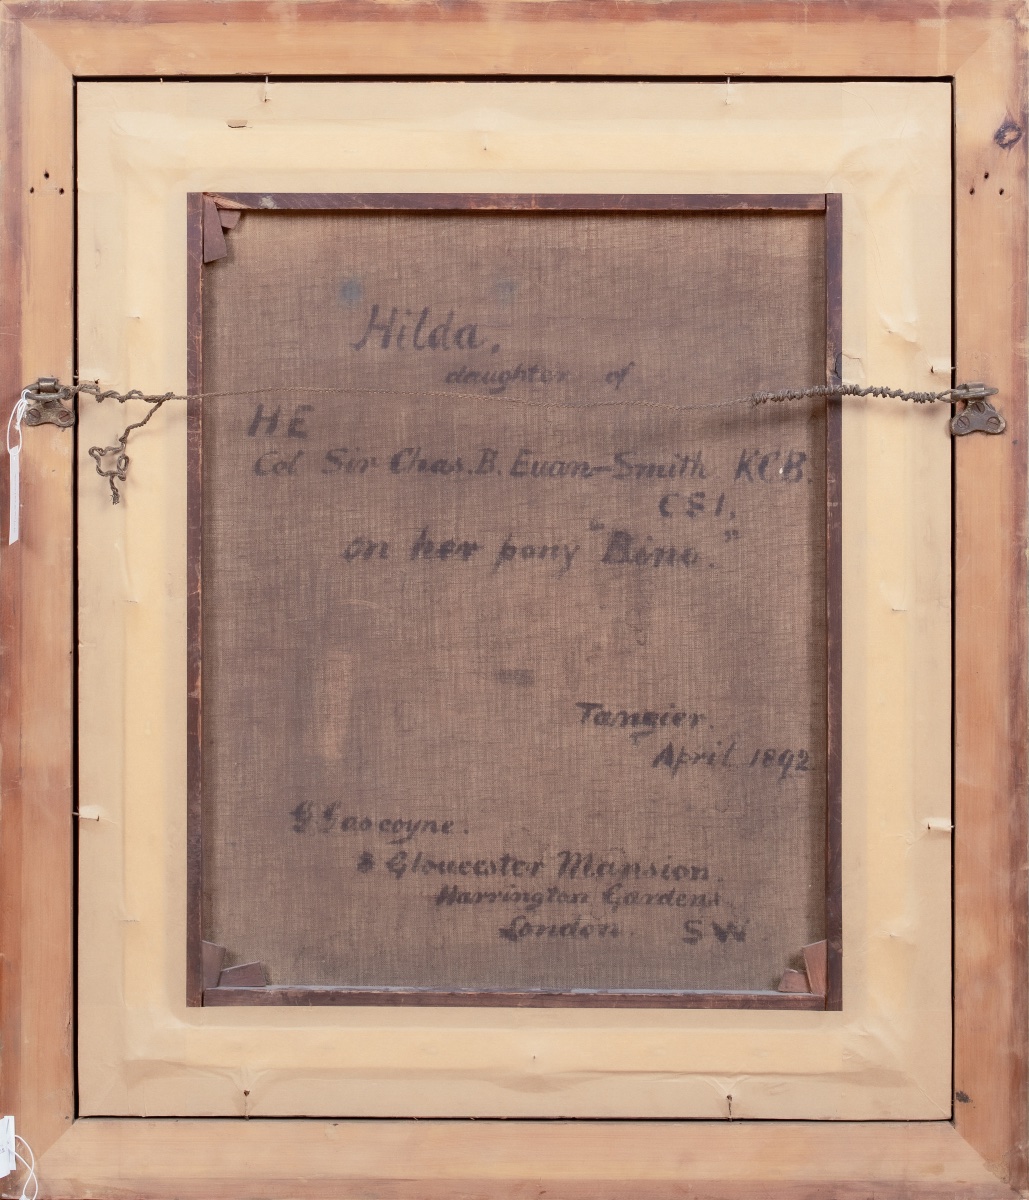 Hilda,
daughter of
HE
Col Sir Chas. B. Euan-Smith KCB.
CSI,
on her pony "Bono."
Tangier.
April 1892
G Gascoyne.
8 Gloucester Mansion.
Harrington Gardens
London. SW.